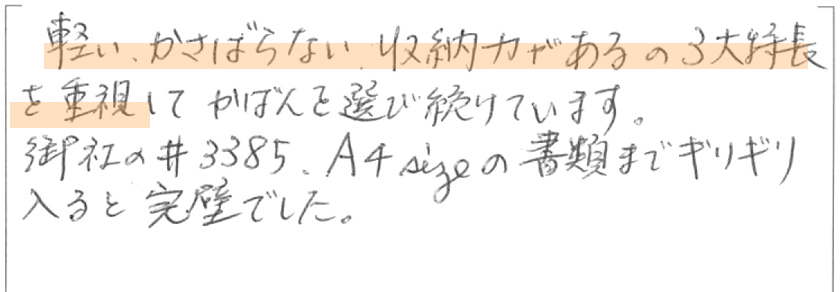 軽い、かさばらない、収納力があるの3大特長
を重視してかばんを選び続けています。
御社の#3385、A4sizeの書類までギリギリ
入ると完璧でした。